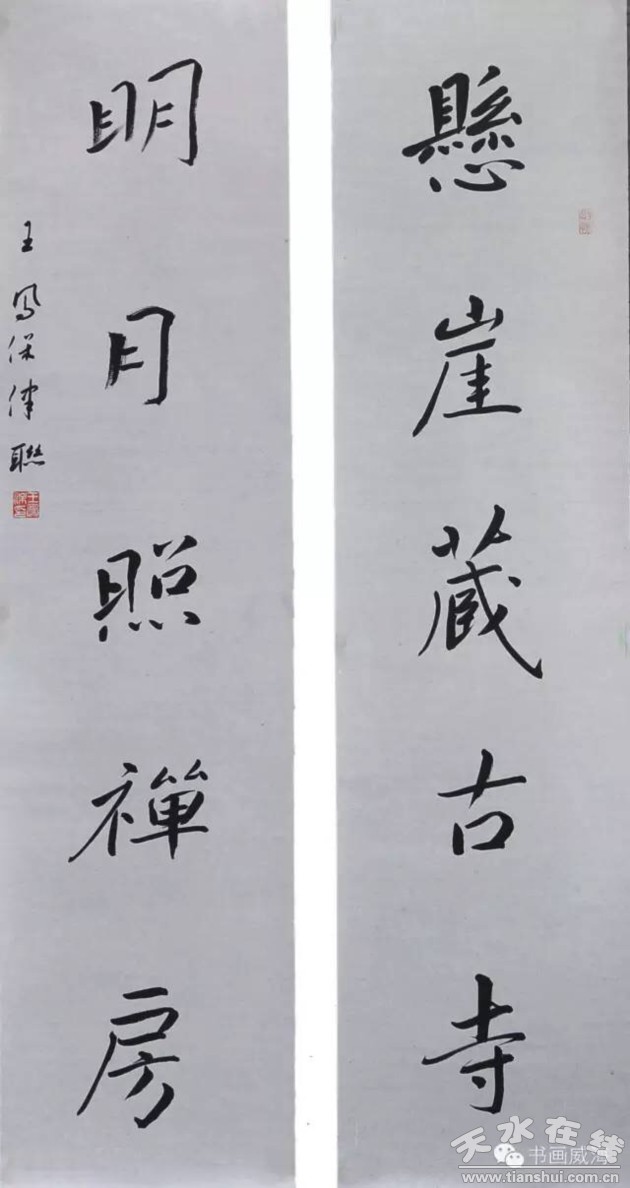 懸崖藏古寺
明月照禪房
王鳳保律聯
天水在线
书画威海
www.tianshui.com.cn